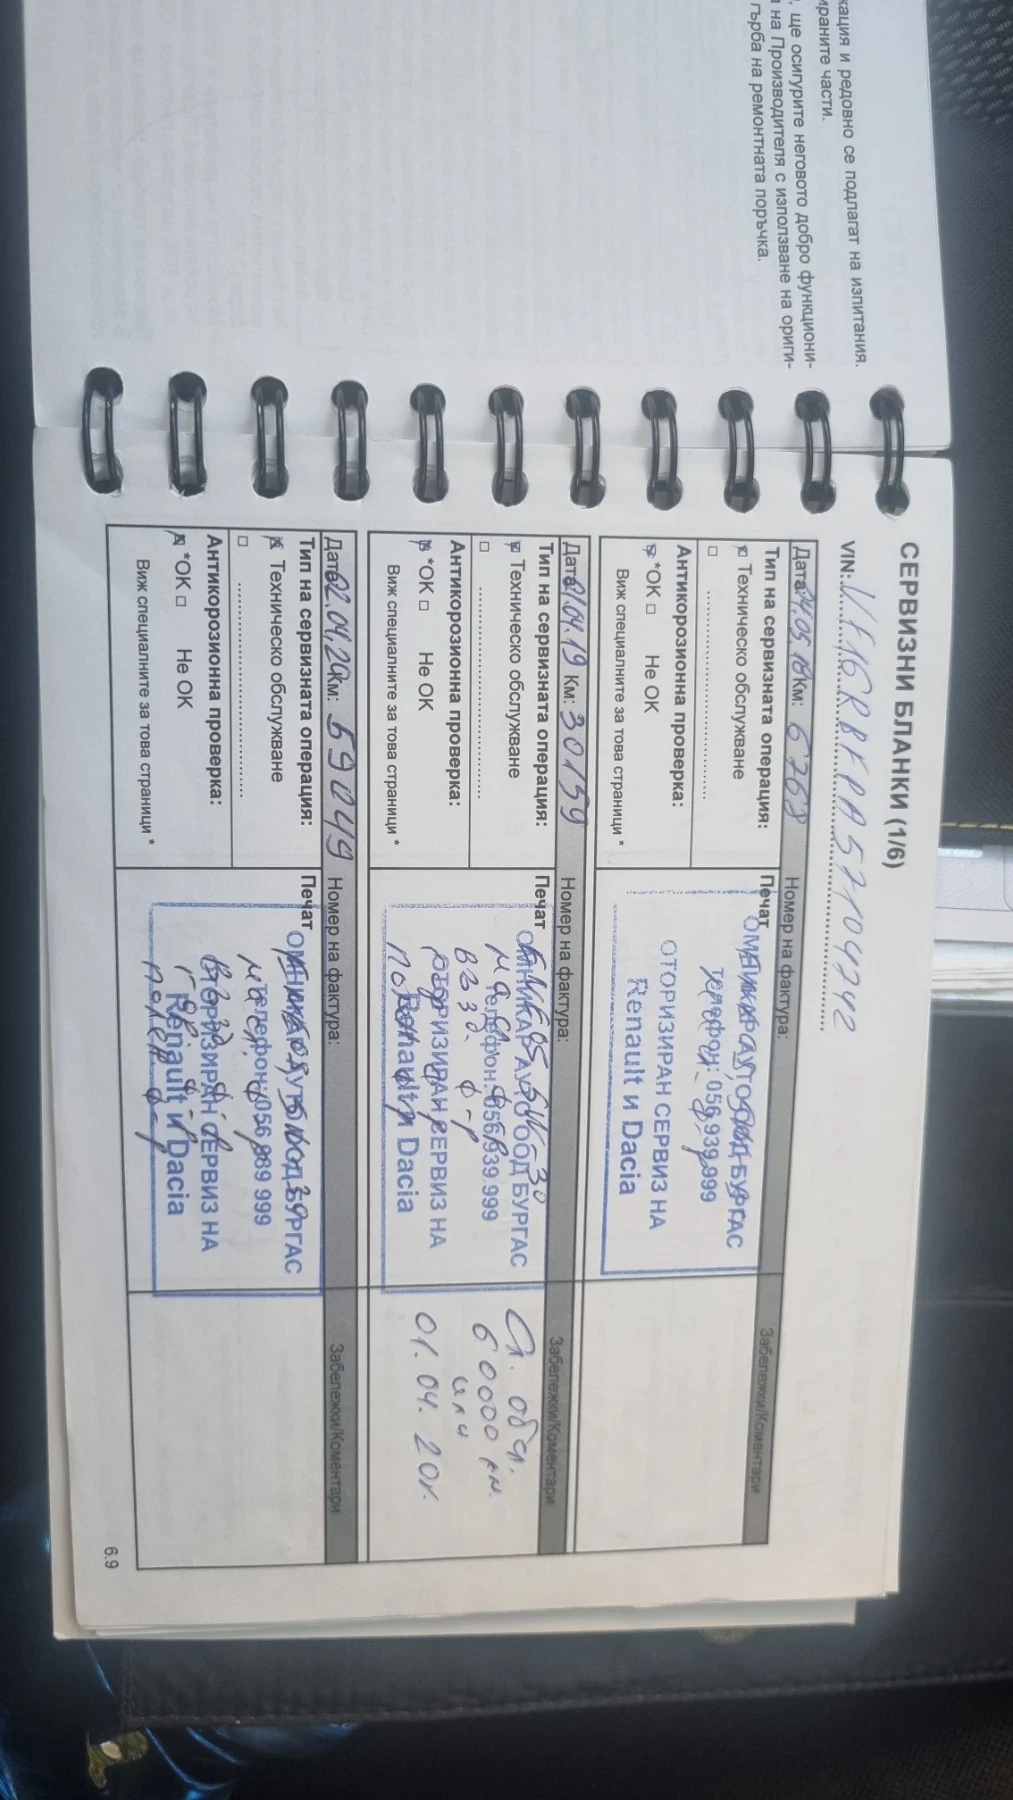 кация и редовно се подлагат на изпитания.
ираните части.
, ще осигурите неговото добро функциони-
а на Производителя с използване на ориги-
гърба на ремонтната поръчка.
СЕРВИЗНИ БЛАНКИ (1/6)
VIN:
Дата: Км: 6768 Номер на фактура: Забележки/Коментари
Тип на сервизната операция: Печат
Техническо обслужване
Антикорозионна проверка:
*ОК □ Не ОК
Виж специалните за това страници *
ОМНИКАР АУТО ООД БУРГАС
Телефон: 056 939 999
ОТОРИЗИРАН СЕРВИЗ НА
Renault и Dacia
Дата 01.04.19 Км: 30159 Номер на фактура: Забележки/Коментари
Тип на сервизната операция: Печат
Техническо обслужване
Антикорозионна проверка:
*ОК □ Не ОК
Виж специалните за това страници *
ОМНИКАР АУТО ООД БУРГАС
Телефон: 056 939 999
ОТОРИЗИРАН СЕРВИЗ НА
Renault и Dacia
5W-30
Сл. обсл.
60000 км.
или
01.04.20г.
Дата 02.04.20 Км: 59049 Номер на фактура: Забележки/Коментари
Тип на сервизната операция: Печат
Техническо обслужване
Антикорозионна проверка:
*ОК □ Не ОК
Виж специалните за това страници *
ОМНИКАР АУТО ООД БУРГАС
Телефон: 056 939 999
ОТОРИЗИРАН СЕРВИЗ НА
Renault и Dacia
6.9